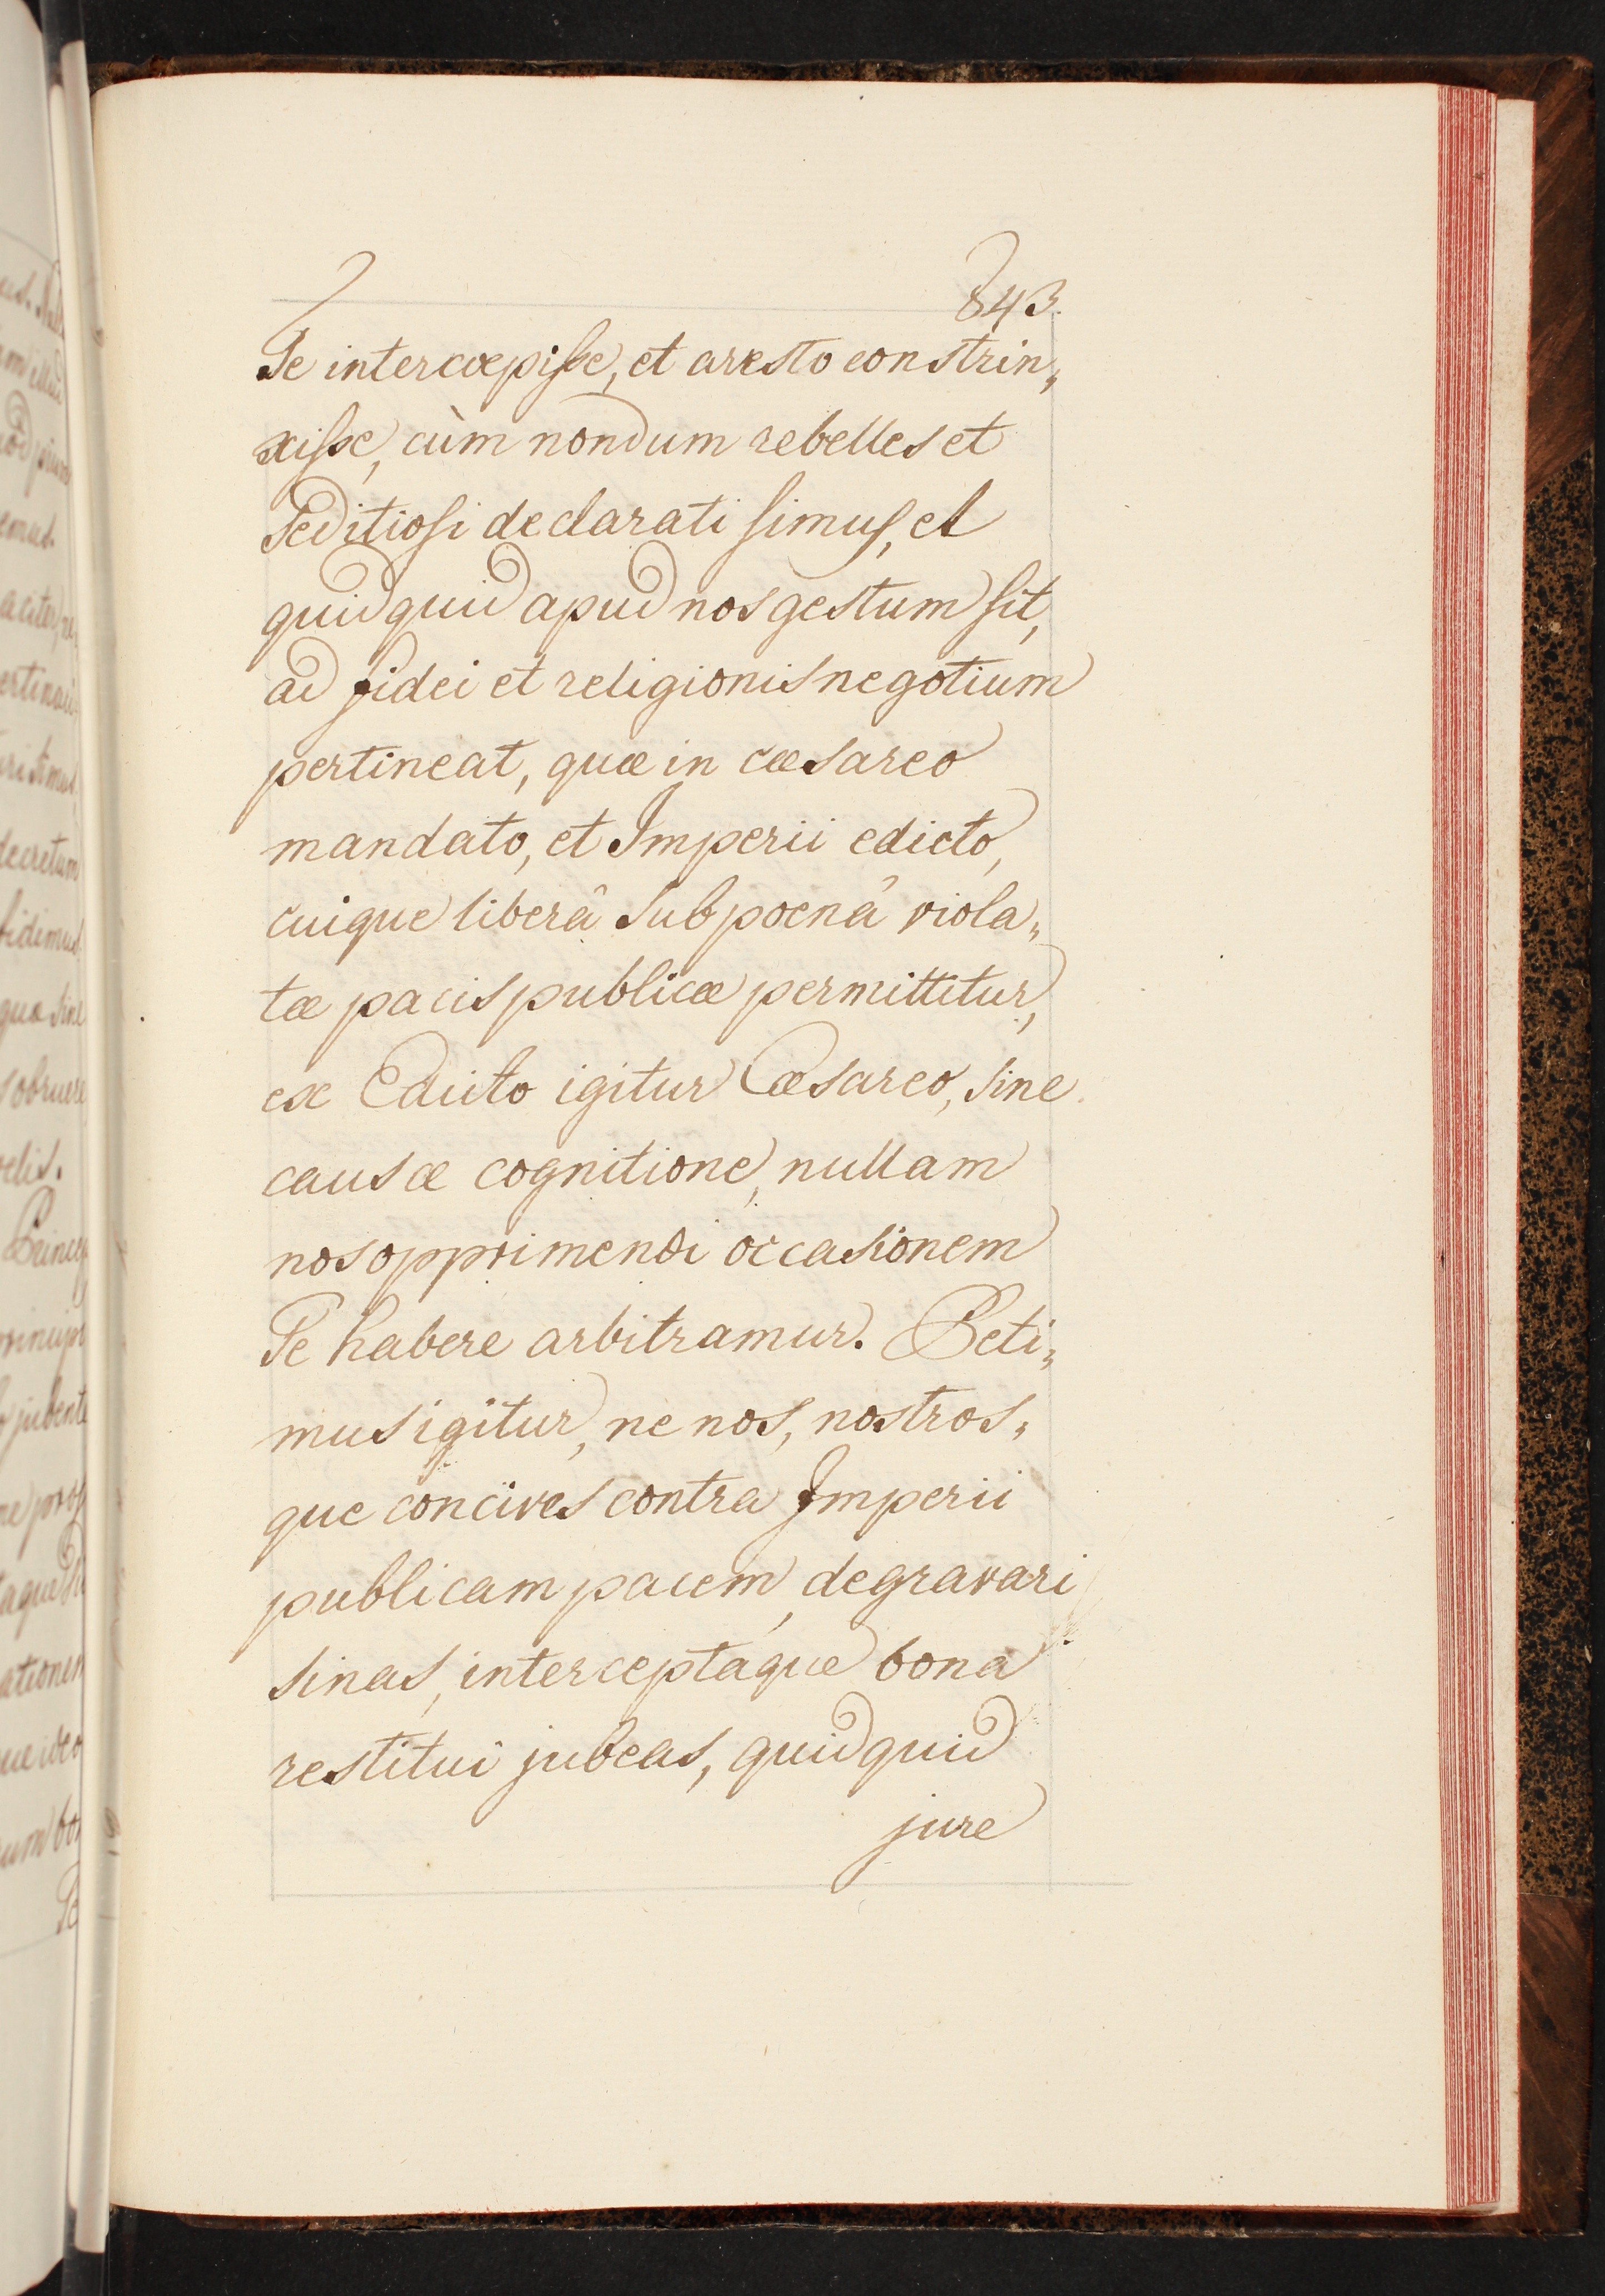 843.
Te intercoepisse, et aresto constrin„
xisse, cùm nondum rebelles et
seditiosi declarati simus, et
quidquid apud nos gestum sit,
ad fidei et religionis negotium
pertineat, quæ in cæsareo
mandato, et Imperii edicto,
cuique liberâ sub poenâ viola„
tæ pacis publicæ permittitur,
ex Edicto igitur Cæsareo, sine
causæ cognitione, nullam
nos opprimendi occasionem
Te habere arbitramur. Peti„
mus igitur, ne nos, nostros„
que concives contra Imperii
publicam pacem, degravari
sinas, interceptaque bona
restitui jubeas, quidquid
jure